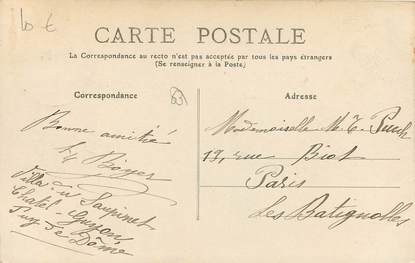 10 €
CARTE POSTALE
La Correspondance au recto n'est pas acceptée par tous les pays étrangers
(Se renseigner à la Poste)
Correspondance
63
Adresse
Bonne amitié
Boyer
Villa du
Chatel-Guyon
Puy de Dôme
Mademoiselle M. T.
17, rue Biot
Paris
Les Batignolles